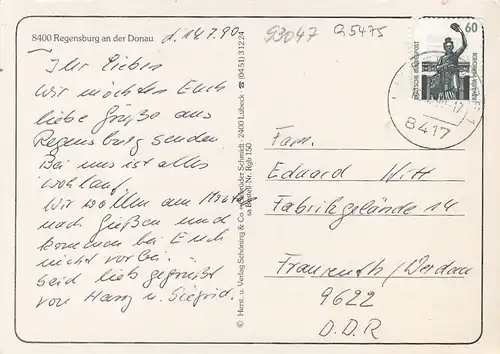 8400 Regensburg an der Donau
d. 14.7.90
93047
Q5475
Ihr Lieben
Wir möchten Euch
liebe Grüße aus
Regensburg senden.
Bei uns ist alles
wohlauf.
Wir wollen am
nach Gießen und
kommen bei Euch
nicht vorbei.
Seid lieb gegrüßt
von Hans u. Siegrid.
© Herst. u. Verlag Schöning & Co + Gebrüder Schmidt · 2400 Lübeck ☎ (04 51) 3 12 24
Bestell Nr. Rgb 150
60
DEUTSCHE BUNDESPOST
8417
Fam.
Eduard Witt
Fabrikgelände 14
Fraureuth / Werdau
9622
D.D.R